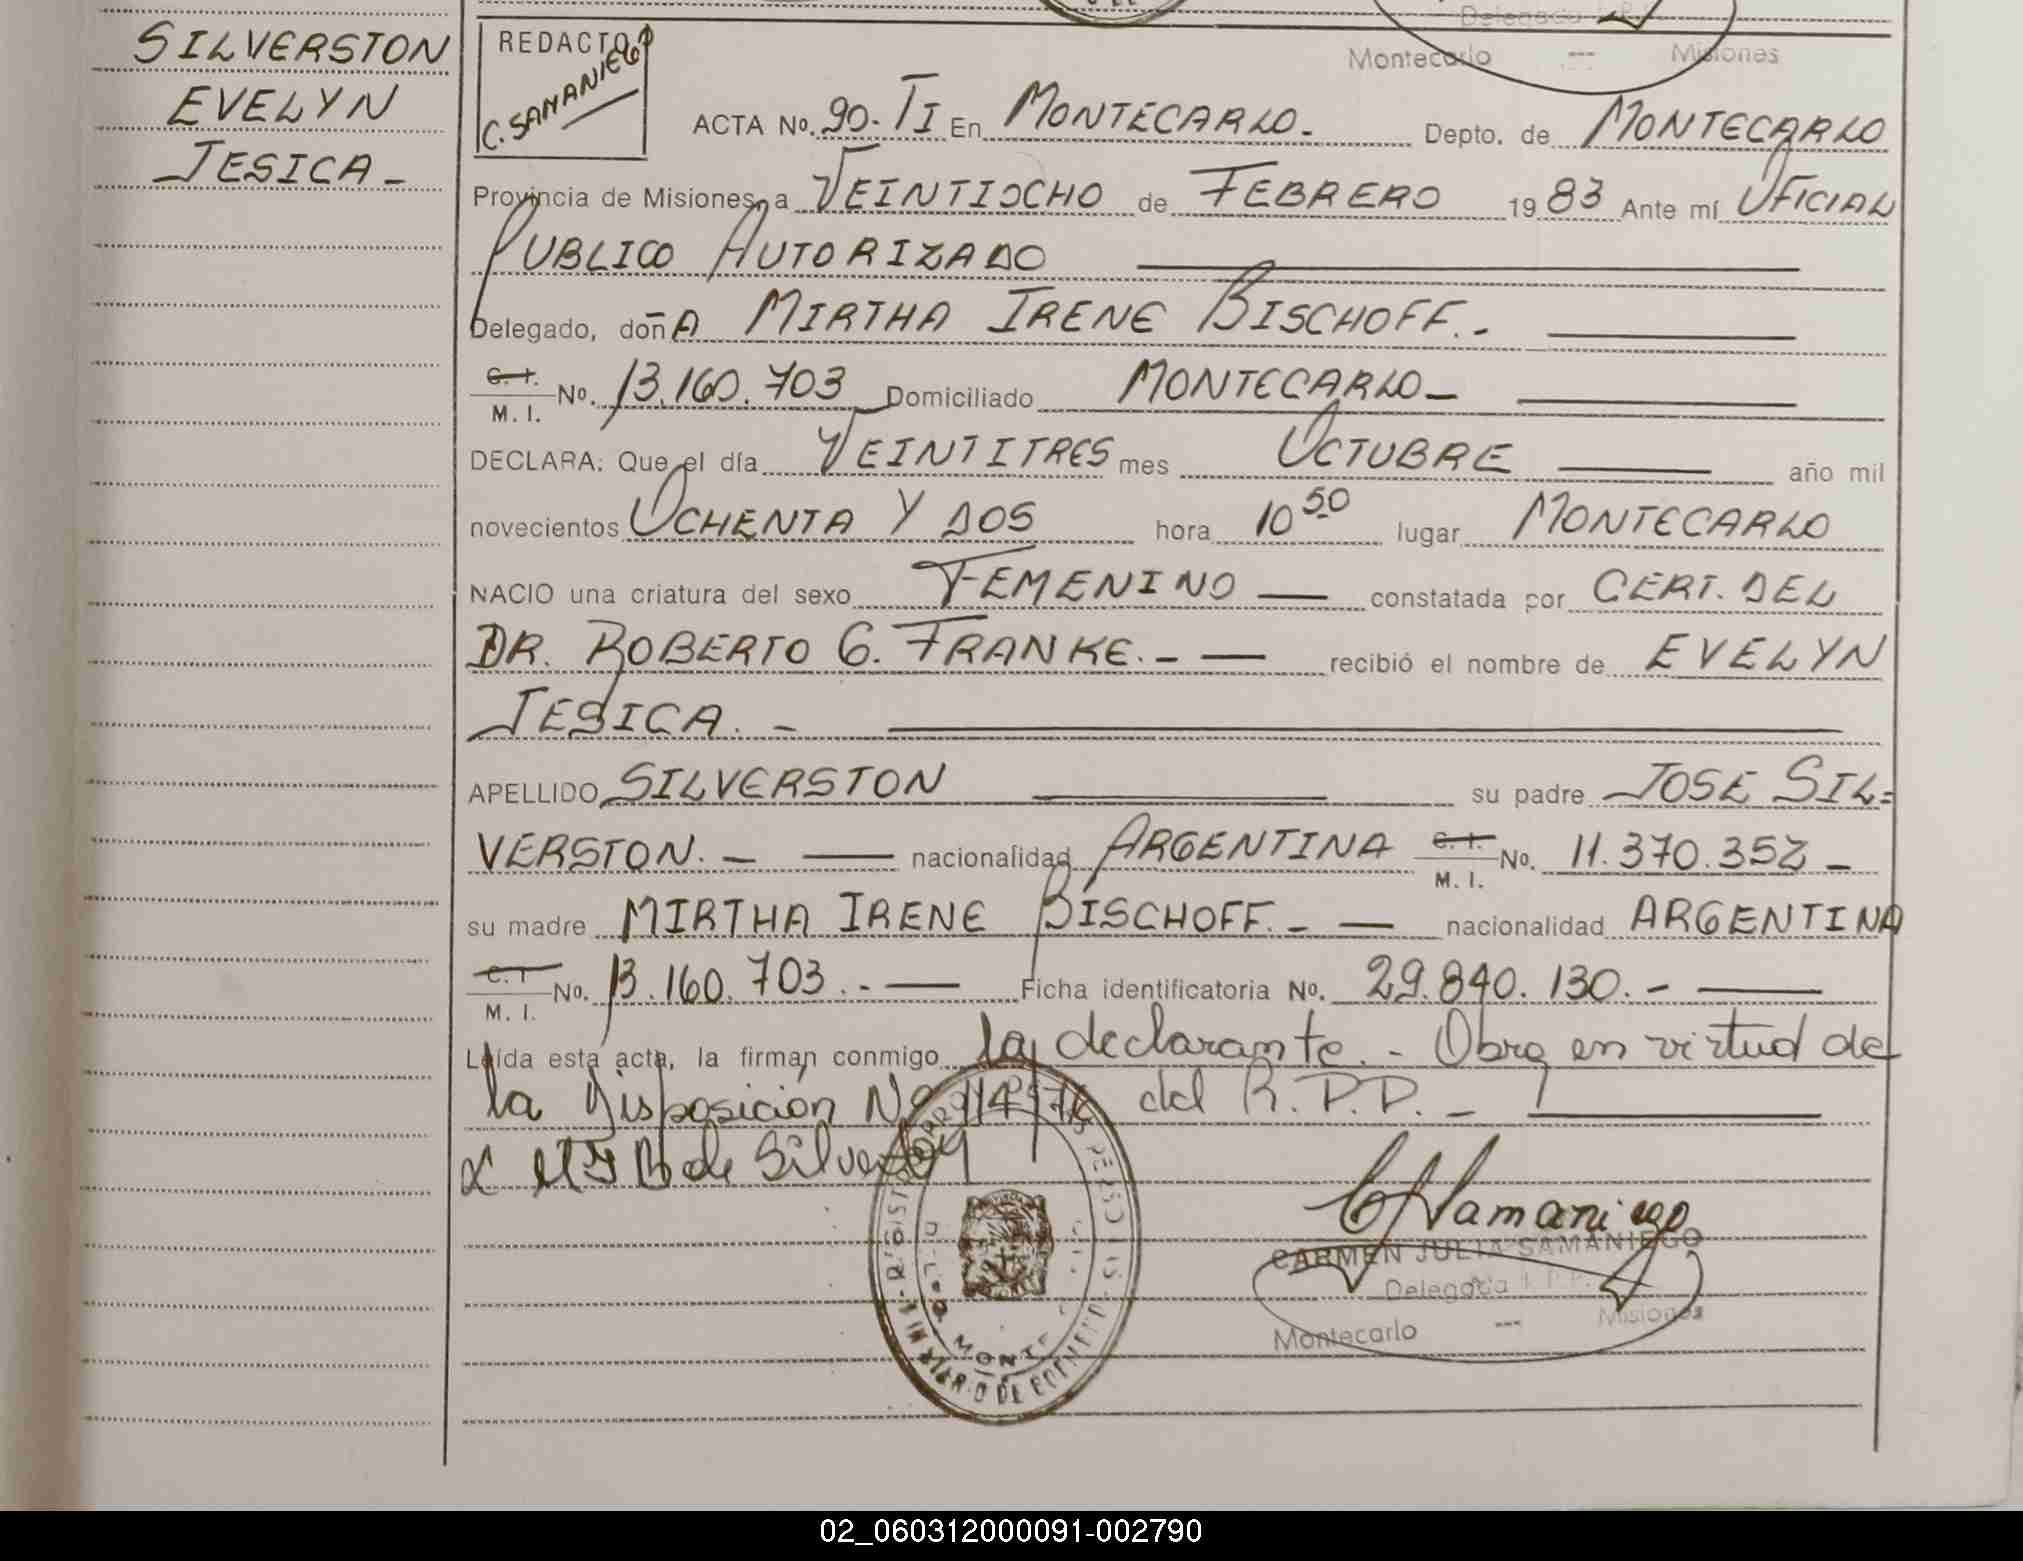 SILVERSTON
EVELYN
JESICA -
Delegada
Montecarlo --- Misiones
REDACTO
C. SAMANIEGO
ACTA No. 90-TI En MONTECARLO.- Depto. de MONTECARLO
Provincia de Misiones, a VEINTIOCHO de FEBRERO 1983 Ante mí OFICIAL
PUBLICO AUTORIZADO
Delegado, doñA MIRTHA IRENE BISCHOFF.-
C. I.
M. I. No. 13.160.703 Domiciliado MONTECARLO -
DECLARA: Que el día VEINTITRES mes OCTUBRE año mil
novecientos OCHENTA Y DOS hora 10 50 lugar MONTECARLO
NACIO una criatura del sexo FEMENINO constatada por CERT. DEL
DR. ROBERTO G. FRANKE.- recibió el nombre de EVELYN
JESICA. -
APELLIDO SILVERSTON su padre JOSE SIL=
VERSTON. - nacionalidad ARGENTINA C. I.
M. I. No. 11.370.352 -
su madre MIRTHA IRENE BISCHOFF. - nacionalidad ARGENTINA
C. I
M. I. No. 13.160.703.- Ficha identificatoria No. 29.840.130.-
Leída esta acta, la firman conmigo la declarante.- Obra en virtud de
la Disposicion No 114/76 del R.P.P. -
B de Silverston
C J Samaniego
CARMEN JULIA SAMANIEGO
Delegada R. P. P.
Montecarlo --- Misiones
02_060312000091-002790